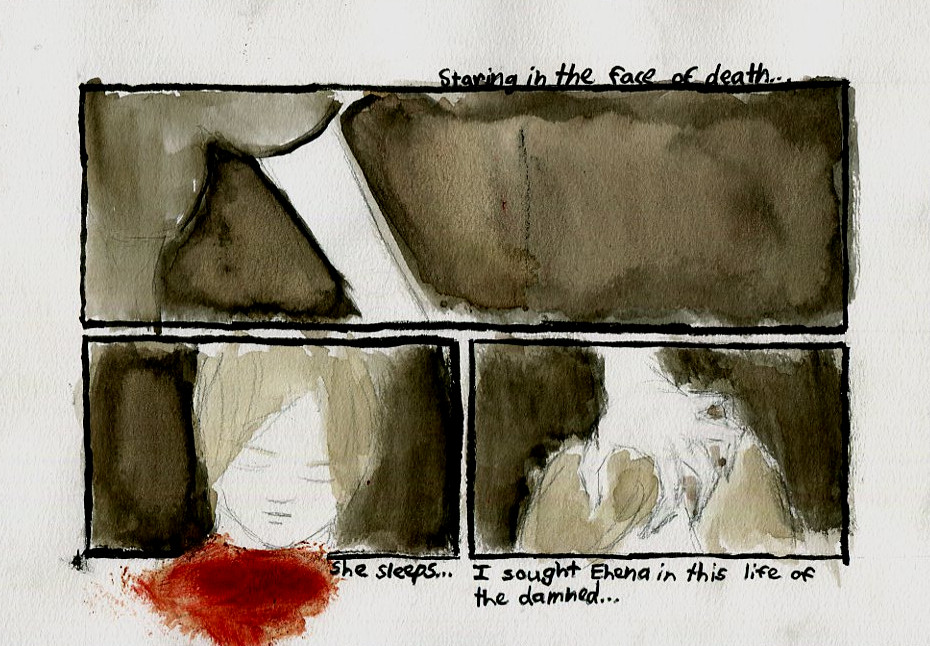 Staring in the face of death...
She sleeps...
I sought Ehena in this life of
the damned...